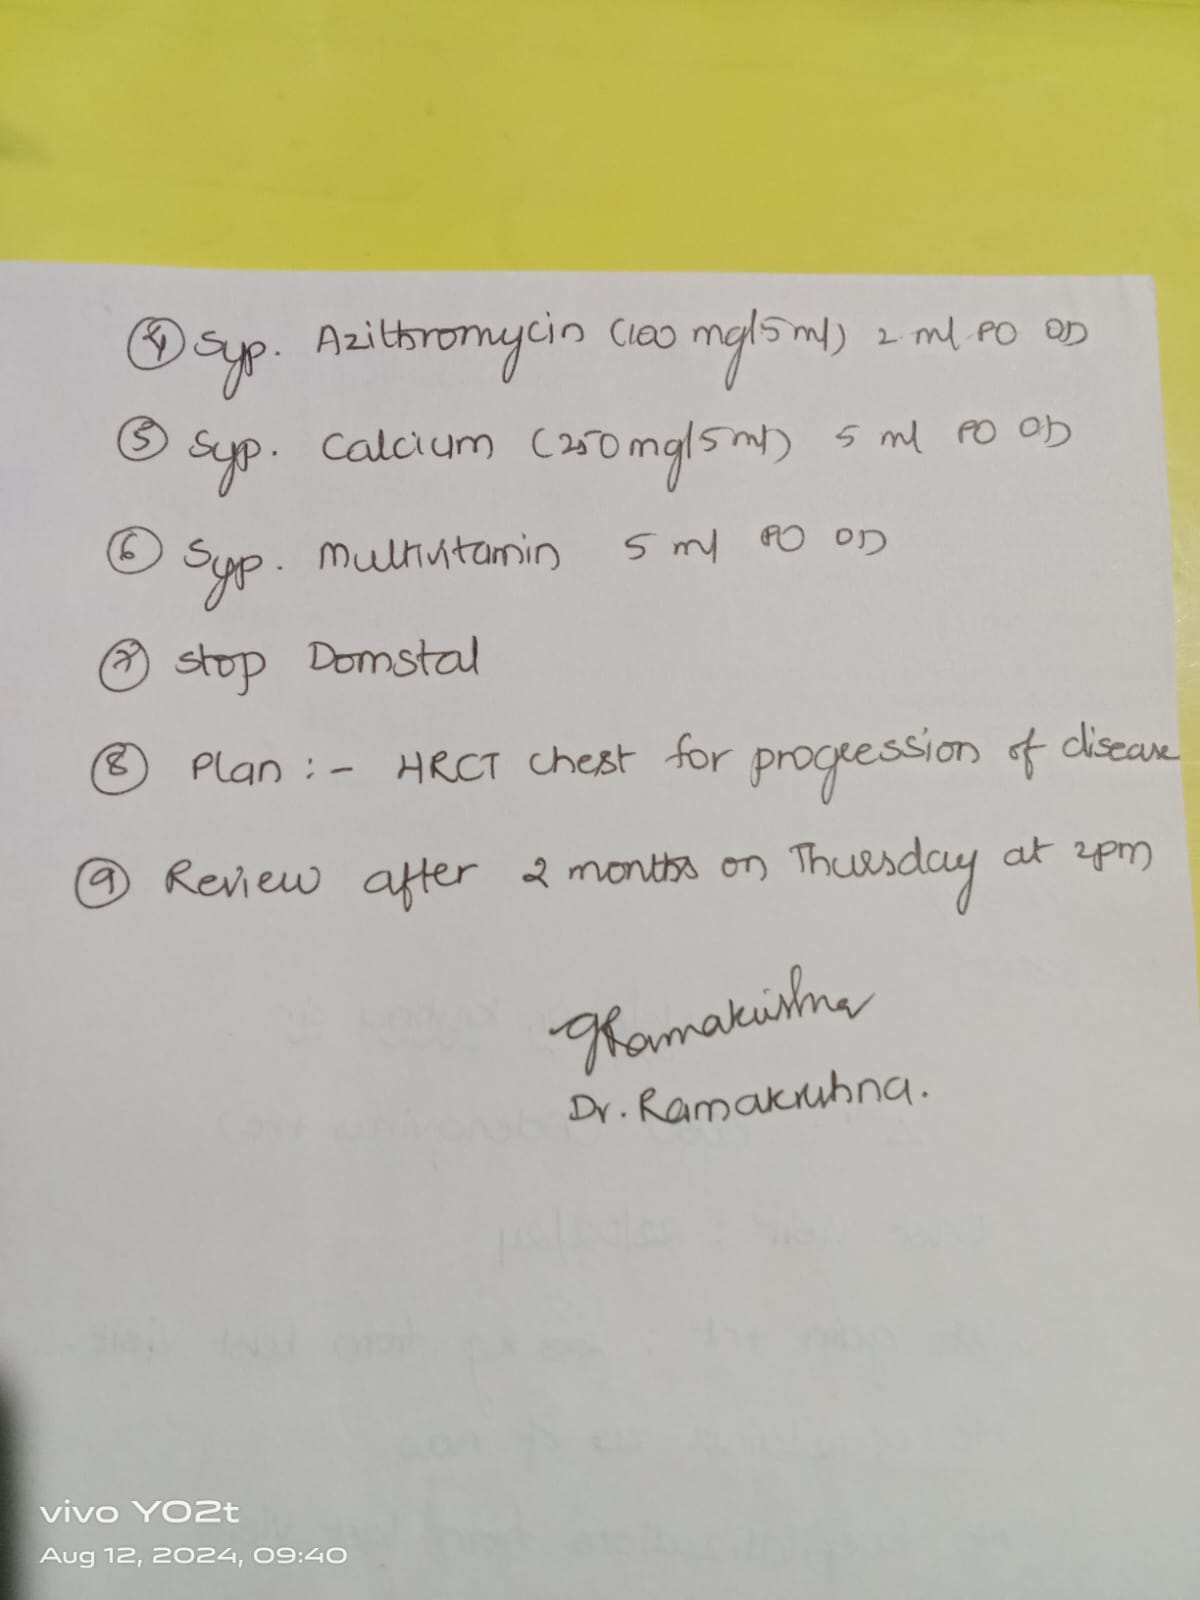 ④ Syp. Azithromycin (100 mg/5ml) 2 ml PO OD
⑤ Syp. Calcium (250mg/5ml) 5 ml PO OD
⑥ Syp. Multivitamin 5 ml PO OD
⑦ Stop Domstal
⑧ Plan :- HRCT chest for progression of disease
⑨ Review after 2 months on Thursday at 2pm
GRamakrishna
Dr. Ramakrishna.
vivo Y02t
Aug 12, 2024, 09:40